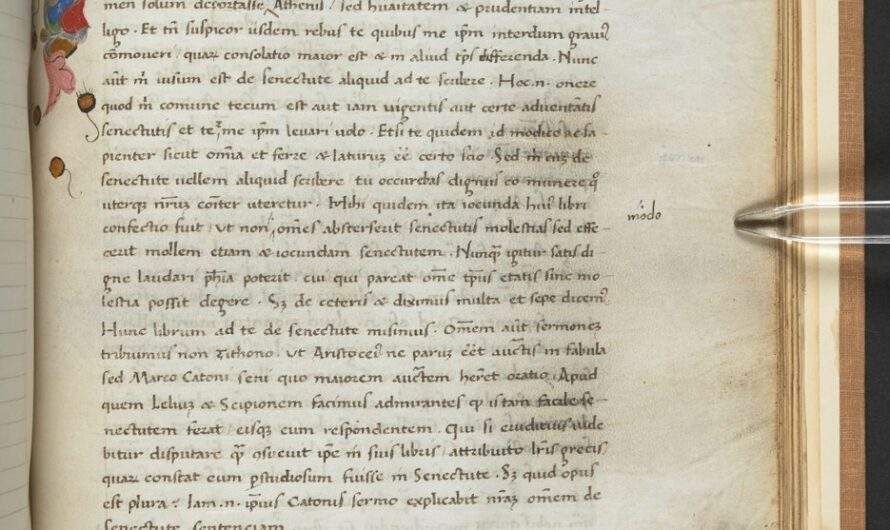 men solum deportasse Athenis / sed hũaitatem & prudentiam intel-
ligo. Et tñ suspicor iisdem rebus te quibus me ipm̃ interdum grauiꝰ
cõmoueri / quaꝝ consolatio maior est & in aliud tp̃s differenda. Nunc
aũt m̃ uisum est de senectute aliquid ad te scribere. Hoc .n. onere
quod m̃ comune tecum est aut iam uigentis aut certe aduentãtis
senectutis et te me ipm̃ leuari uolo. Etsi te quidem id modice ac sa-
pienter sicut om̃ia et ferre & laturuꝫ eẽ certo scio Sed de
senectute uellem aliquid scribere tu occurrebas dignus eo munere qͦ
uterqꝫ nr̃uꝫ coiter uteretur. Mihi quidem ita iocunda huiꝰ libri
confectio fuit / ut non om̃es absterserit senectutis molestias sed effe-
cerit mollem etiam & iocundam senectutem. Nunqꝫ igitur satis di-
gne laudari ph̃ia poterit cui qui pareat om̃e tp̃us etatis sine mo-
lestia possit degere. Sꝫ de ceteris & diximus multa et sepe dicemꝰ
Hunc librum ad te de senectute misimus. Om̃em aũt sermoneꝫ
tribuimus non Tithono / ut Aristoceus ne paruꝫ eẽt auctĩs in fabula
sed Marco Catoni seni quo maiorem auctẽm haberet oratio. Apud
quem Leliuꝫ & Scipionem facimus admirantes ꝙ istam facile se-
nectutem ferat / eisqꝫ eum respondentem. Qui si eruditius uide
bitur disputare qꝫ consueuit ipẽ in suis libris / attribuito lr̃is grecis
quaꝝ constat eum pstudiosum fuisse in Senectute. Sꝫ quid opus
est plura? Iam .n. ipsius Catonis sermo explicabit nr̃aꝫ om̃em de
senectute sentenciam
modo